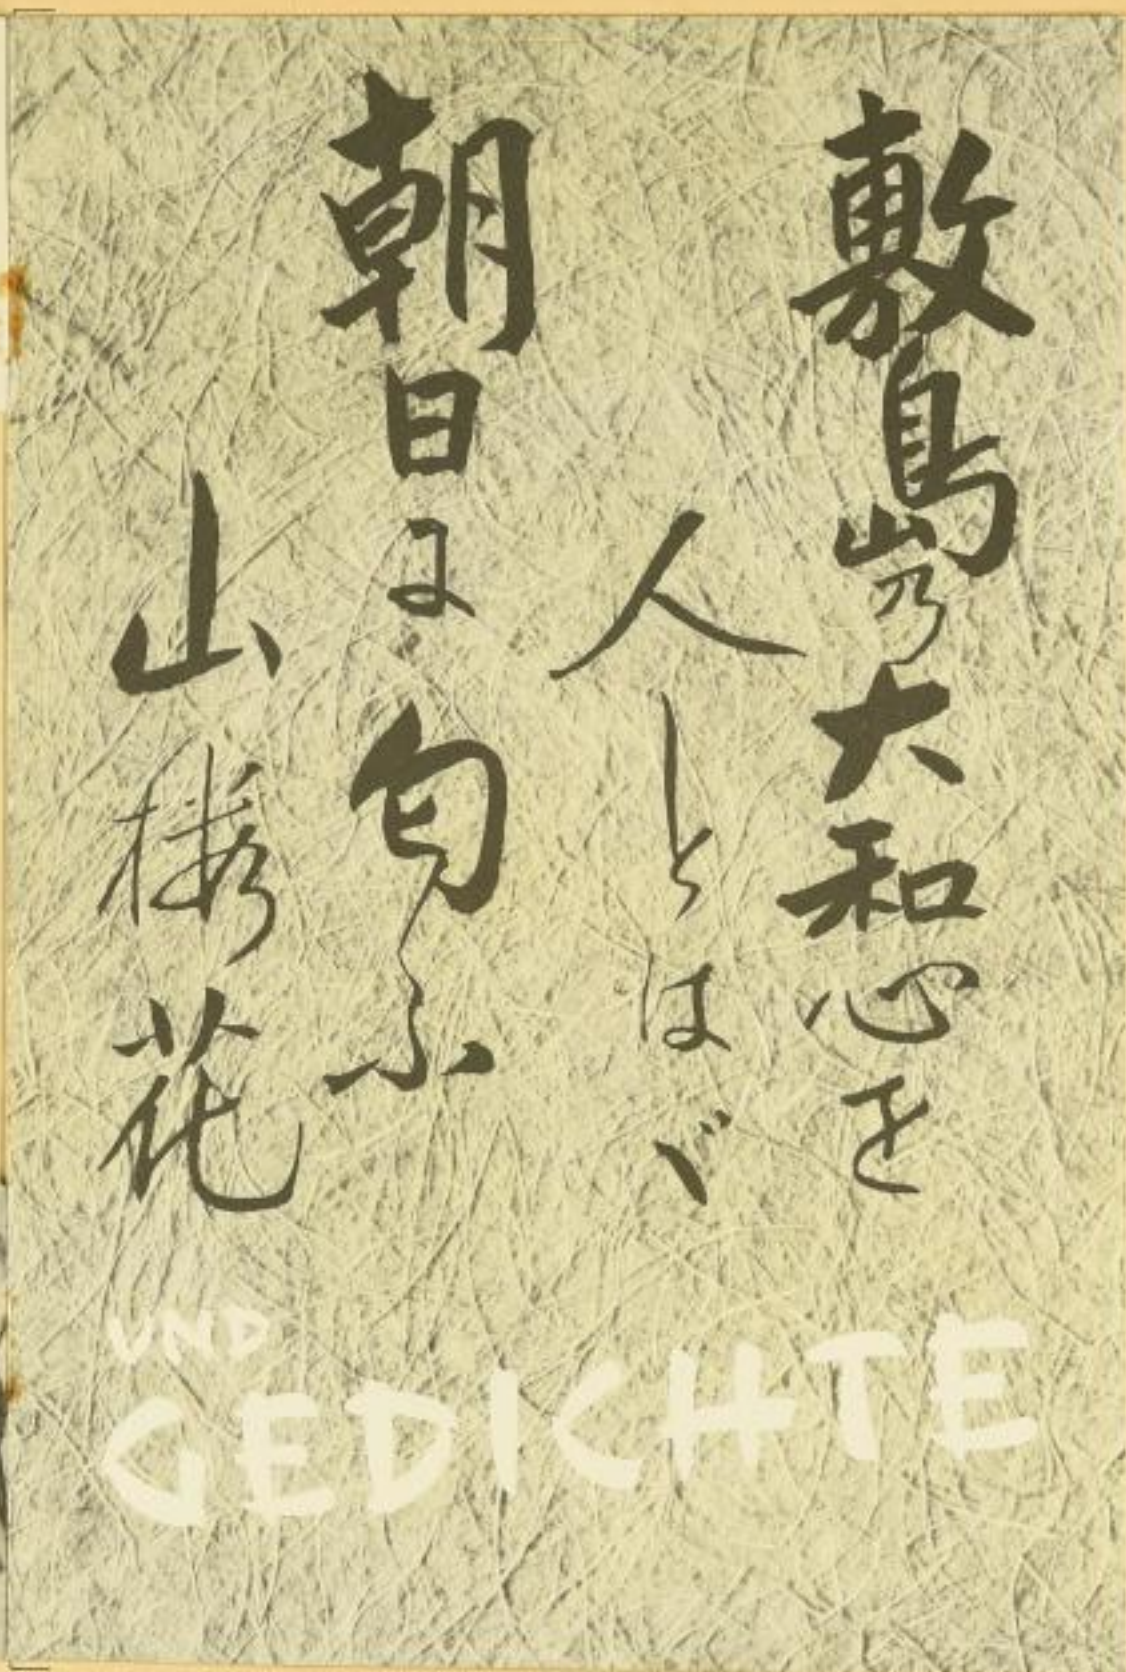 敷島乃大和心を
人とはゞ
朝日に匂ふ
山桜花
UND
GEDICHTE